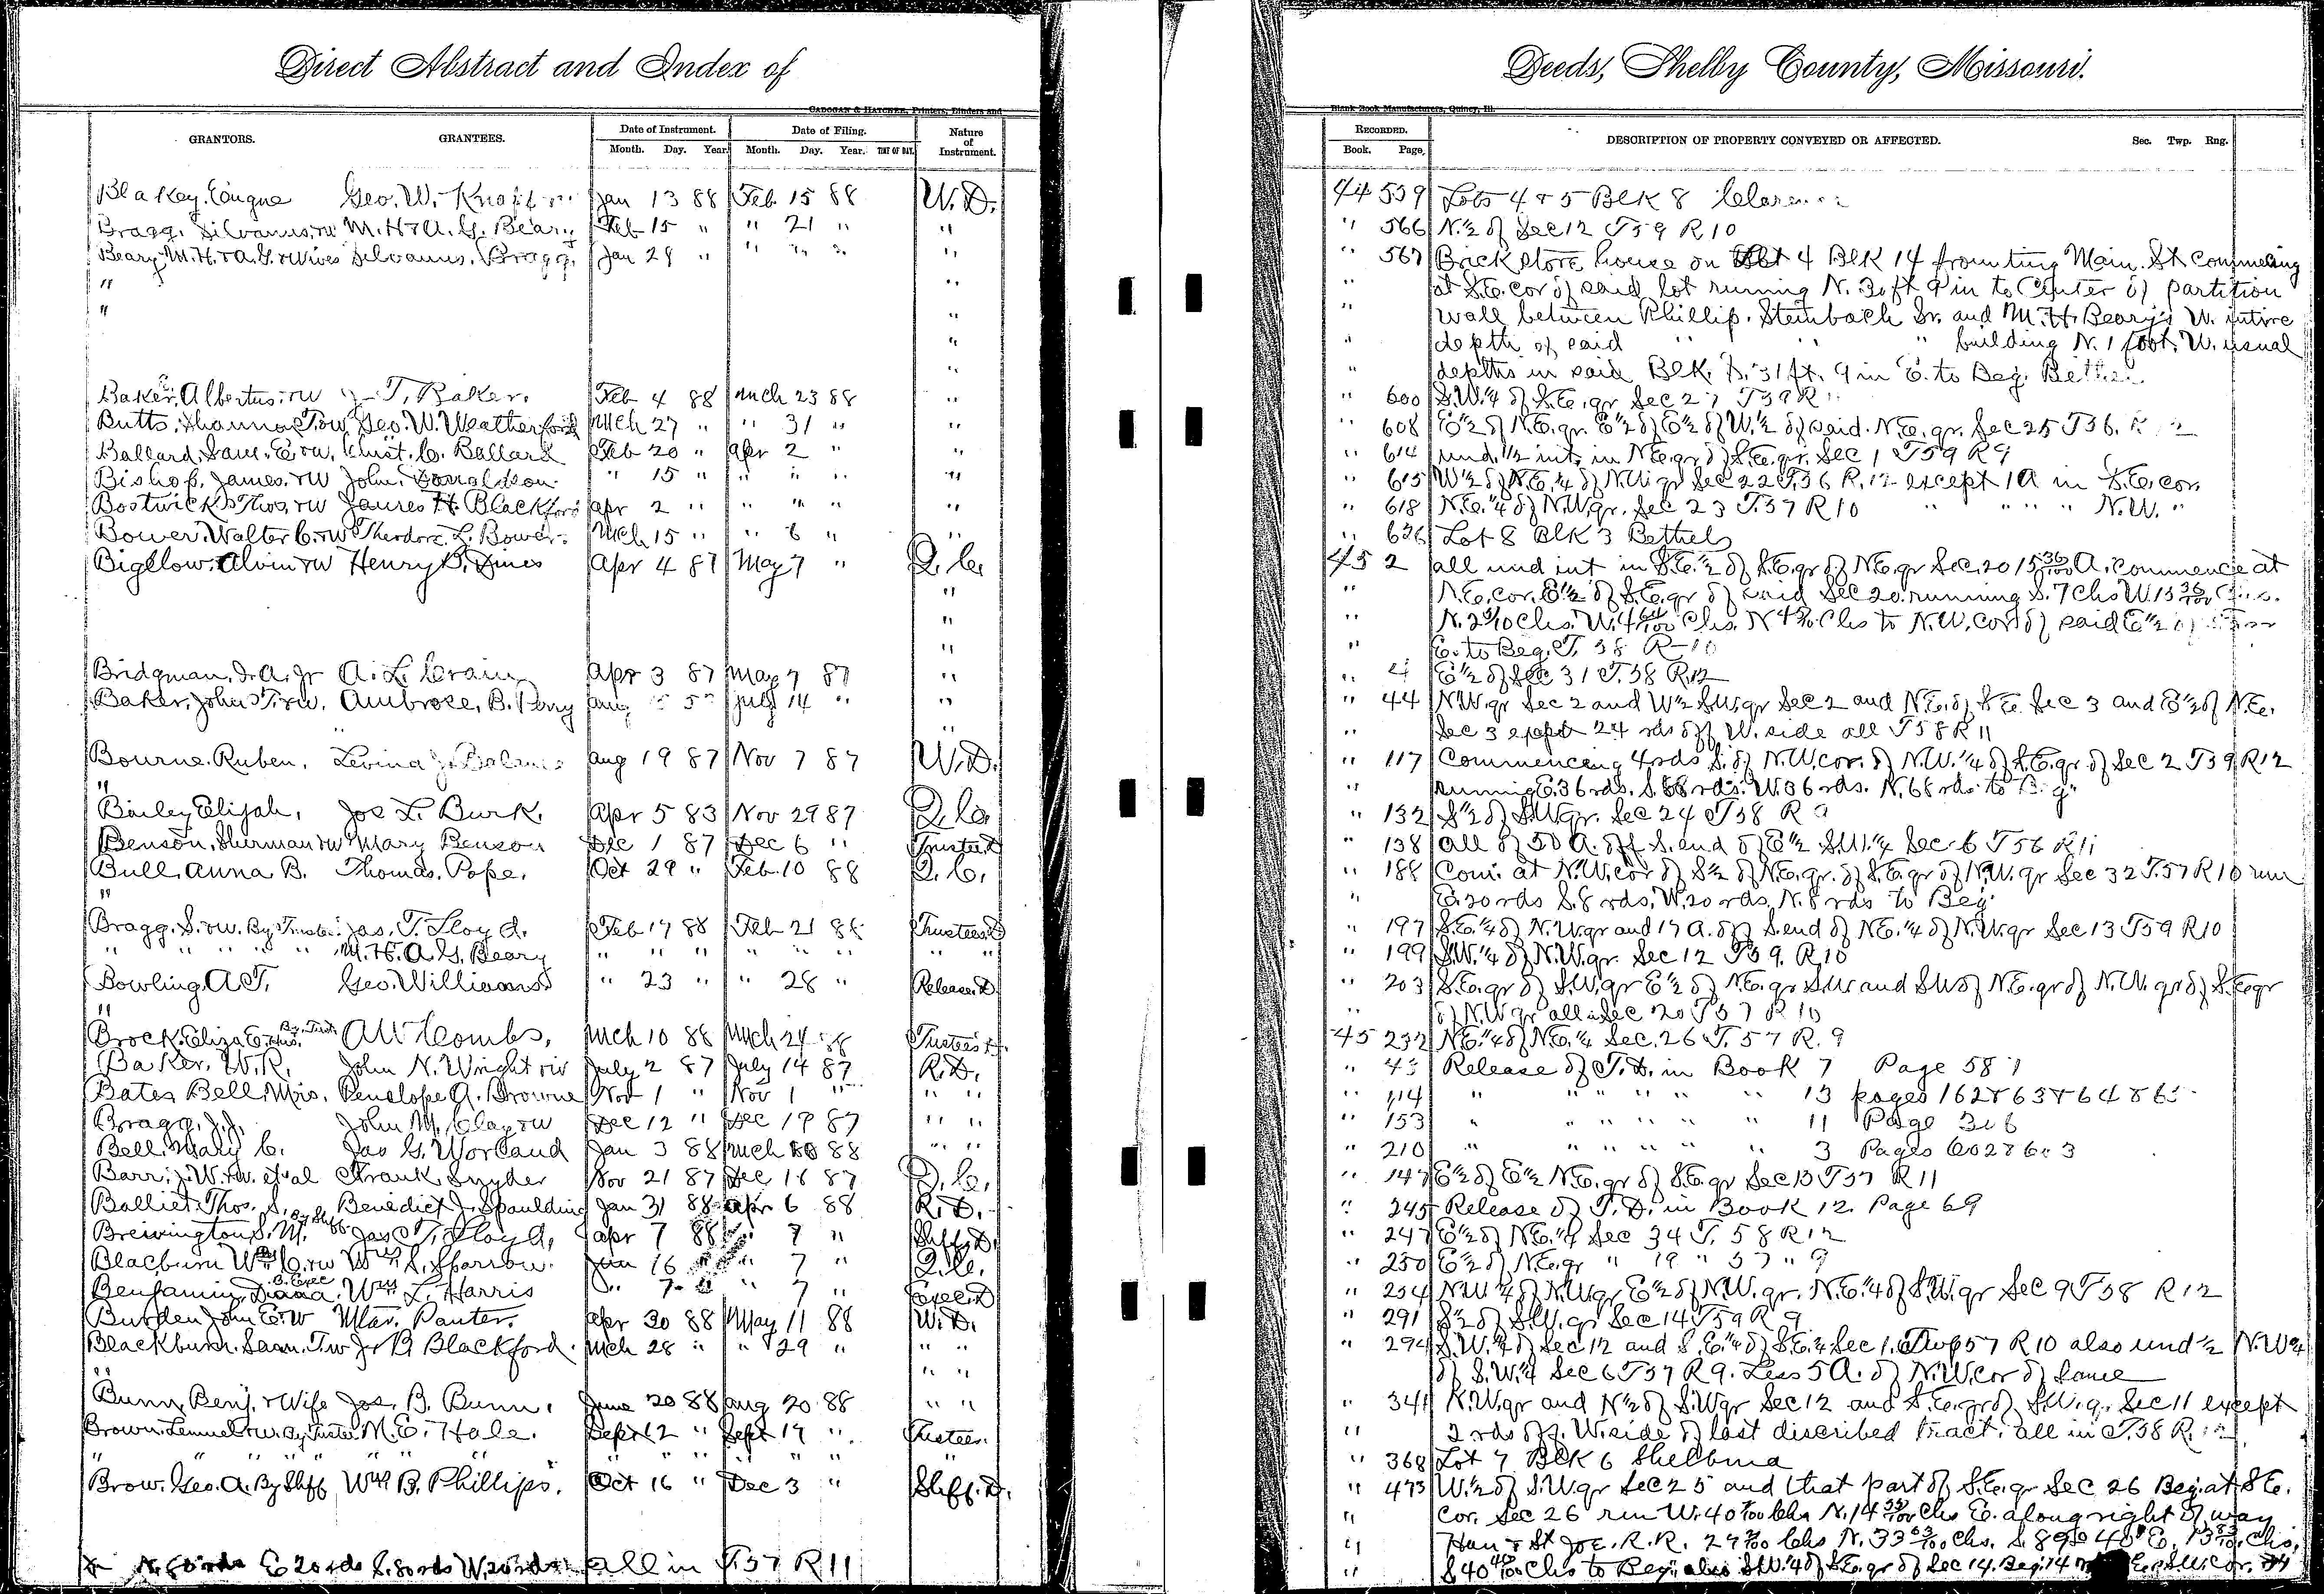 Direct Abstract and Index of Deeds, Shelby County, Missouri.
CADOGAN & HATCHER, Printers, Binders and Blank Book Manufacturers, Quincy, Ill.
GRANTORS. GRANTEES. Date of Instrument. Date of Filing. Nature of Instrument. RECORDED. DESCRIPTION OF PROPERTY CONVEYED OR AFFECTED. Sec. Twp. Rng.
Month. Day. Year. Month. Day. Year. TIME OF DAY. Book. Page.
Blakey, Eugne Geo. W. Jan 13 88 Feb 15 88 W.D. 44 539 Lots 4 & 5 Blk 8
Bragg, Silvanus, rw M.H & A.G. Beary Feb 15 " " 21 " " " 566 N.½ of Sec 12 T59 R10
Beary M.H. & A.G. & Wives Silvanus, Bragg, Jan 28 " " " " " " 567 Brick store house on Lot 4 Blk 14 frounting Main St commecing
" " " at S.E. cor of said lot runing N. 30 ft 9 in to Center of partition
" " " wall between Phillip. Steinbach Sr. and M.H. Beary's W. intire
" " depth of said " " " building N. 1 foot, W. usual
" " depths in said Blk. S. 31 ft. 9 in E. to Beg. Bethel
Baker, Albertus, rw J. T. Baker. Feb 4 88 Mch 23 88 " " 600 S.W.¼ of S.E. qr Sec 27 T59 R
Butts, T rw Geo. W. Weatherford Mch 27 " " 31 " " " 608 E½ of N.E. qr. E½ of E½ of W.½ of said N.E. qr. Sec 25 T56. R 12
Ballard, Saml. E. rw. Christ. C. Ballard Feb 20 " Apr 2 " " " 614 und. 1/2 int. in N.E. qr of S.E. qr. Sec 1 T59 R9
Bishop, James, rw John, Donaldson " 15 " " " " " " 615 W½ of N.E.¼ of N.W. qr Sec 22 T.56 R.12 except 1A in S.E. cor.
Bostwick Thos, rw James H. Blackford Apr 2 " " " " " " 618 N.E.¼ of N.W qr. Sec 23 T.57 R10 " " " " N.W. "
Bower, Walter C. rw Theodore L. Bower. Mch 15 " " 6 " " " 626 Lot 8 Blk 3 Bethel
Bigllow, Alvin rw Henry D. Apr 4 87 May 7 " Q.C. 45 2 all und int in S.E.½ of S.E. qr of N.E. qr Sec. 20 15 36/100 A. Commence at
" " N.E. cor. E½ of S.E. qr of said Sec 20 running S. 7 chs W. 15 36/100 Chs.
" " N. 2 Chs. W. 4 Chs. N 4 Chs to N.W. cor of said E½ of
" " E. to Beg. T. 58 R-10
Bridgman, J. A. Jr A. L. Crain, Apr 3 87 May 7 87 " " 4 E½ of Sec 31 T.58 R.12
Baker, John T. rw. Ambrose, B. Perry Aug July 14 " " " 44 N.W. qr Sec 2 and W½ S.W. qr Sec 2 and N.E. of S.E. Sec 3 and E½ of N.E.
" " Sec 3 exept 24 rds off W. side all T58 R11
Bourne, Ruben, Levina J. Aug 19 87 Nov 7 87 W.D. " 117 Commencing 4 rds S. of N.W. cor. of N.W.¼ of S.E. qr. of Sec 2 T59 R12
" " running E. 36 rds. S. 68 rds. W. 36 rds. N. 68 rds. to Beg.
Bailey Elijah, Jos L. Burk. Apr 5 83 Nov 29 87 Q.C. " 132 S½ of S.W qr. Sec 24 T58 R 9
Benson, Sherman rw Mary Benson Dec 1 87 Dec 6 " Trustee D " 138 all of 50 A. off S. end of E½ S.W.¼ Sec. 6 T56 R11
Bull, Anna B. Thomas, Pope. Oct 29 " Feb. 10 88 Q.C. " 188 Com. at N.W. cor of S½ of N.E. qr. of S.E. qr of N.W. qr Sec 32 T.57 R10 run
" " E. 20 rds S. 8 rds, W. 20 rds, N. 8 rds to Beg.
Bragg, S. rw. By Trustee Jas. T. Lloyd. Feb 17 88 Feb 21 88 Trustees D " 197 S.E.¼ of N.W. qr and 17 A. off S. end of N.E.¼ of N.W. qr Sec 13 T59 R10
" " " " " M. H. A. G. Beary " " " " " " " " " 199 S.W.¼ of N.W. qr. Sec 12 T59. R.10
Bowling, A T. Geo. Williams " 23 " " 28 " Release D. " 203 S.E. qr of S.W. qr E½ of N.E. qr S.W and S.W of N.E. qr of N.W. qr of S.E qr
" " of N.W qr all in Sec 20 T57 R10
Brock, Eliza E. & Hus. By Trust. A W Combs, Mch 10 88 Mch 24 88 Trustee's D. 45 232 N.E.¼ of N.E.¼ Sec. 26 T. 57 R. 9
Baker, W.R. John N. Wright rw July 2 87 July 14 87 R.D. " 43 Release of T.D. in Book 7 Page 587
Bates Bell, Mrs. Penelope A. Browne Nov 1 " Nov 1 " " " " 114 " " " " " " 13 pages 162 & 63 & 64 & 65
Bragg, J.J. John M. Clay rw Dec 12 " Dec 19 87 " " " 153 " " " " " " 11 Page 306
Bell, Mary C. Jas G. Worland Jan 3 88 Mch 88 " " " 210 " " " " " " 3 Pages 602 & 603
Barr, J. W. rw. et al Frank Snyder Nov 21 87 Dec 16 87 Q.C. " 147 E½ of E½ N.E. qr of S.E. qr Sec 13 T57 R11
Balliet, Thos. S. Benedict J. Spaulding Jan 31 88 Apr 6 88 R.D. " 245 Release of T.D. in Book 12. Page 69
Breivington S. M. By Shff. Jas T. Lloyd, Apr 7 88 " 7 " Shff's D. " 247 E½ of N.E.¼ Sec 34 T. 58 R12
Blacburn Wm C. rw Wm S. Sparrow. Jan 16 " 7 " Q.C. " 250 E½ of N.E. qr " 19 " 57 " 9
Benjamin, Diana, B. Exec Wm L. Harris " 7 " 7 " Exec. D " 254 N.W.¼ of N.W. qr E½ of N.W. qr. N.E.¼ of S.W. qr Sec 9 T58 R12
Burden John E. w Mar. Panter. Apr 30 88 May 11 88 W.D. " 291 S½ of S.W. qr Sec 14 T59 R 9
Blackburn, Saam. T w J. B Blackford. Mch 28 " " 29 " " " " 294 S.W.¼ of Sec 12 and S.E.¼ of S.E.¼ Sec 1. Twp 57 R10 also und ½ N.W¼
" " " " of S.W.¼ Sec 6 T57 R9. Less 5 A. of N.W. cor of same
Bunn, Benj. & Wife Jos. B. Bunn, June 20 88 Aug 20 88 " " " 341 N.W. qr and N½ of S.W qr Sec 12 and S.E. qr of S.W. q. Sec 11 except
Brown Lemuel rw. By Trustee M. E. Hale. Sept 12 " Sept 19 " Trustees. " 2 rds off W. side of last discribed tract, all in T.58 R. 12
" " " " " " " " " " " 368 Lot 7 Blk 6 Shelbina
Brow. Geo. A. By Shff Wm B. Phillips. Oct 16 " Dec 3 " Shff. D. " 473 W.½ of S.W. qr Sec 25 and that part of S.E. qr Sec 26 Beg. at S E.
" Cor. Sec 26 run W. 40 chs N. 14 chs E. along right of way
" Han & St Joe. R. R. 27 chs N. 33 63/100 Chs. S. 89° 40' E. 13 Chs,
" S 40 Chs to Beg. also S.W.¼ of S.E. qr of Sec 14. Beg. 14 E. of S.W. cor.
N. 80 rds E 20 rds S. 80 rds W. 20 rds all in T.57 R11